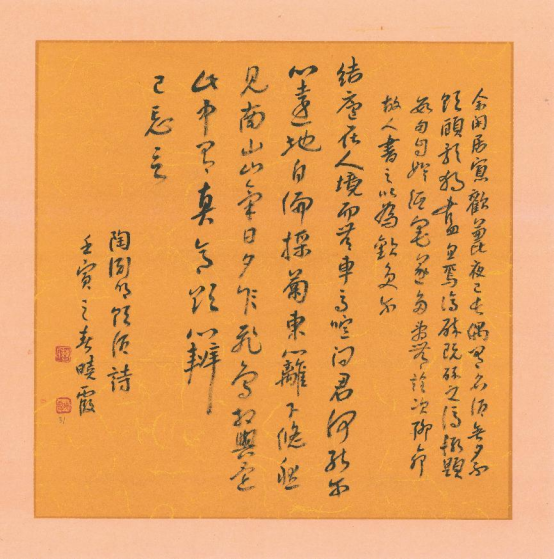 余閑居寡歡兼夜已長偶有名酒無夕不
飲顧影獨盡忽焉復醉既醉之後輒題
數句自娛紙墨遂多辭無詮次聊命
故人書之以為歡笑爾
結廬在人境而無車馬喧問君何能爾
心遠地自偏採菊東籬下悠然
見南山山氣日夕佳飛鳥相與還
此中有真意欲辨
已忘言
陶淵明飲酒詩
壬寅之春曉霞